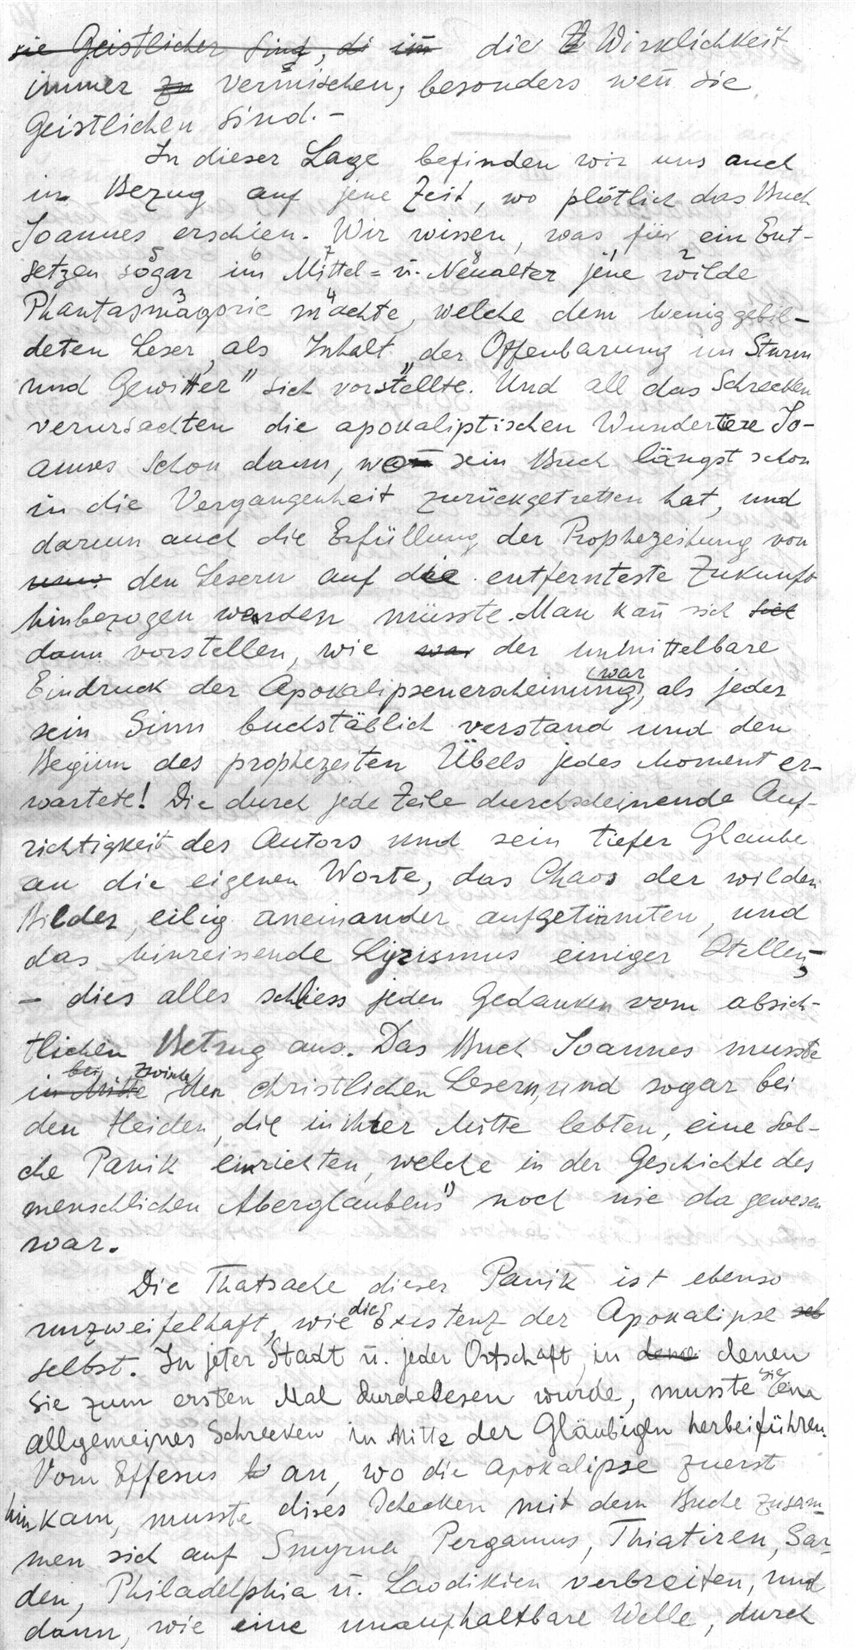 sie Geistlicher sind, di im die W Wirklichkeit
immer zu vermischen, besonders wen̄ sie
Geistlichen sind.-
In dieser Lage befinden wir uns auch
in Bezug auf jene Zeit, wo plötlich das Buch
Joannes erschien. Wir wissen, was für ein Ent-
setzen sogar im Mittel= u. Neualter jene wilde
Phantasmagorie machte, welche dem weniggebil-
deten Leser, als Inhalt „der Offenbarung im Sturm
und Gewitter" sich vorstellte. Und all das Schrecken
verursachten die apokaliptischen Wundertere Jo-
annes schon dann, wo sein Buch längst schon
in die Vergangenheit zurückgetretten hat, und
darum auch die Erfüllung der Prophezeihung von
den Lesern auf die entfernteste Zukunft
hinbezogen werden müsste. Man kan̄ sich sich
dann vorstellen, wie war der unmittelbare
Eindruck der Apokalipsenerscheinung (war), als jeder
sein Sinn buchstäblich verstand und den
Begin̄n des prophezeiten Übels jedes Moment er-
wartete! Die durch jede Zeile durchscheinende Auf-
richtigkeit des Autors und sein tiefer Glaube
an die eigenen Worte, das Chaos der wilden
Bilder, eilig aneinander aufgetürmten, und
das hinreissende Lyrismus einiger Stellen,
- dies alles schliess jeden Gedanken vom absich-
tlichen Betrug aus. Das Buch Joannes musste
in Mitte bei den christlichen Lesern, und sogar bei
den Heiden, die in ihrer Mitte lebten, eine sol-
che Panik einrichten, welche in der Geschichte des
menschlichen Aberglaubens noch nie da gewesen
war.
Die Thatsache dieser Panik ist ebenso
unzweifelhaft, wie die Existenz der Apokalipse sel
selbst. In jeter Stadt u. jeder Ortschaft, in dene denen
sie zum ersten Mal durchlesen wurde, musste sie ein
allgemeines Schrecken in Mitte der Gläubigen herbeiführen.
Vom Effesus an, wo die Apokalipse zuerst
hinkam, musste dises Schecken mit dem Buche zusam-
men sich auf Smyrna, Pergamus, Thiatiren, Sar-
den, Philadelphia u. Laodikien verbreiten, und
dann, wie eine unaufhaltbare Welle, durch